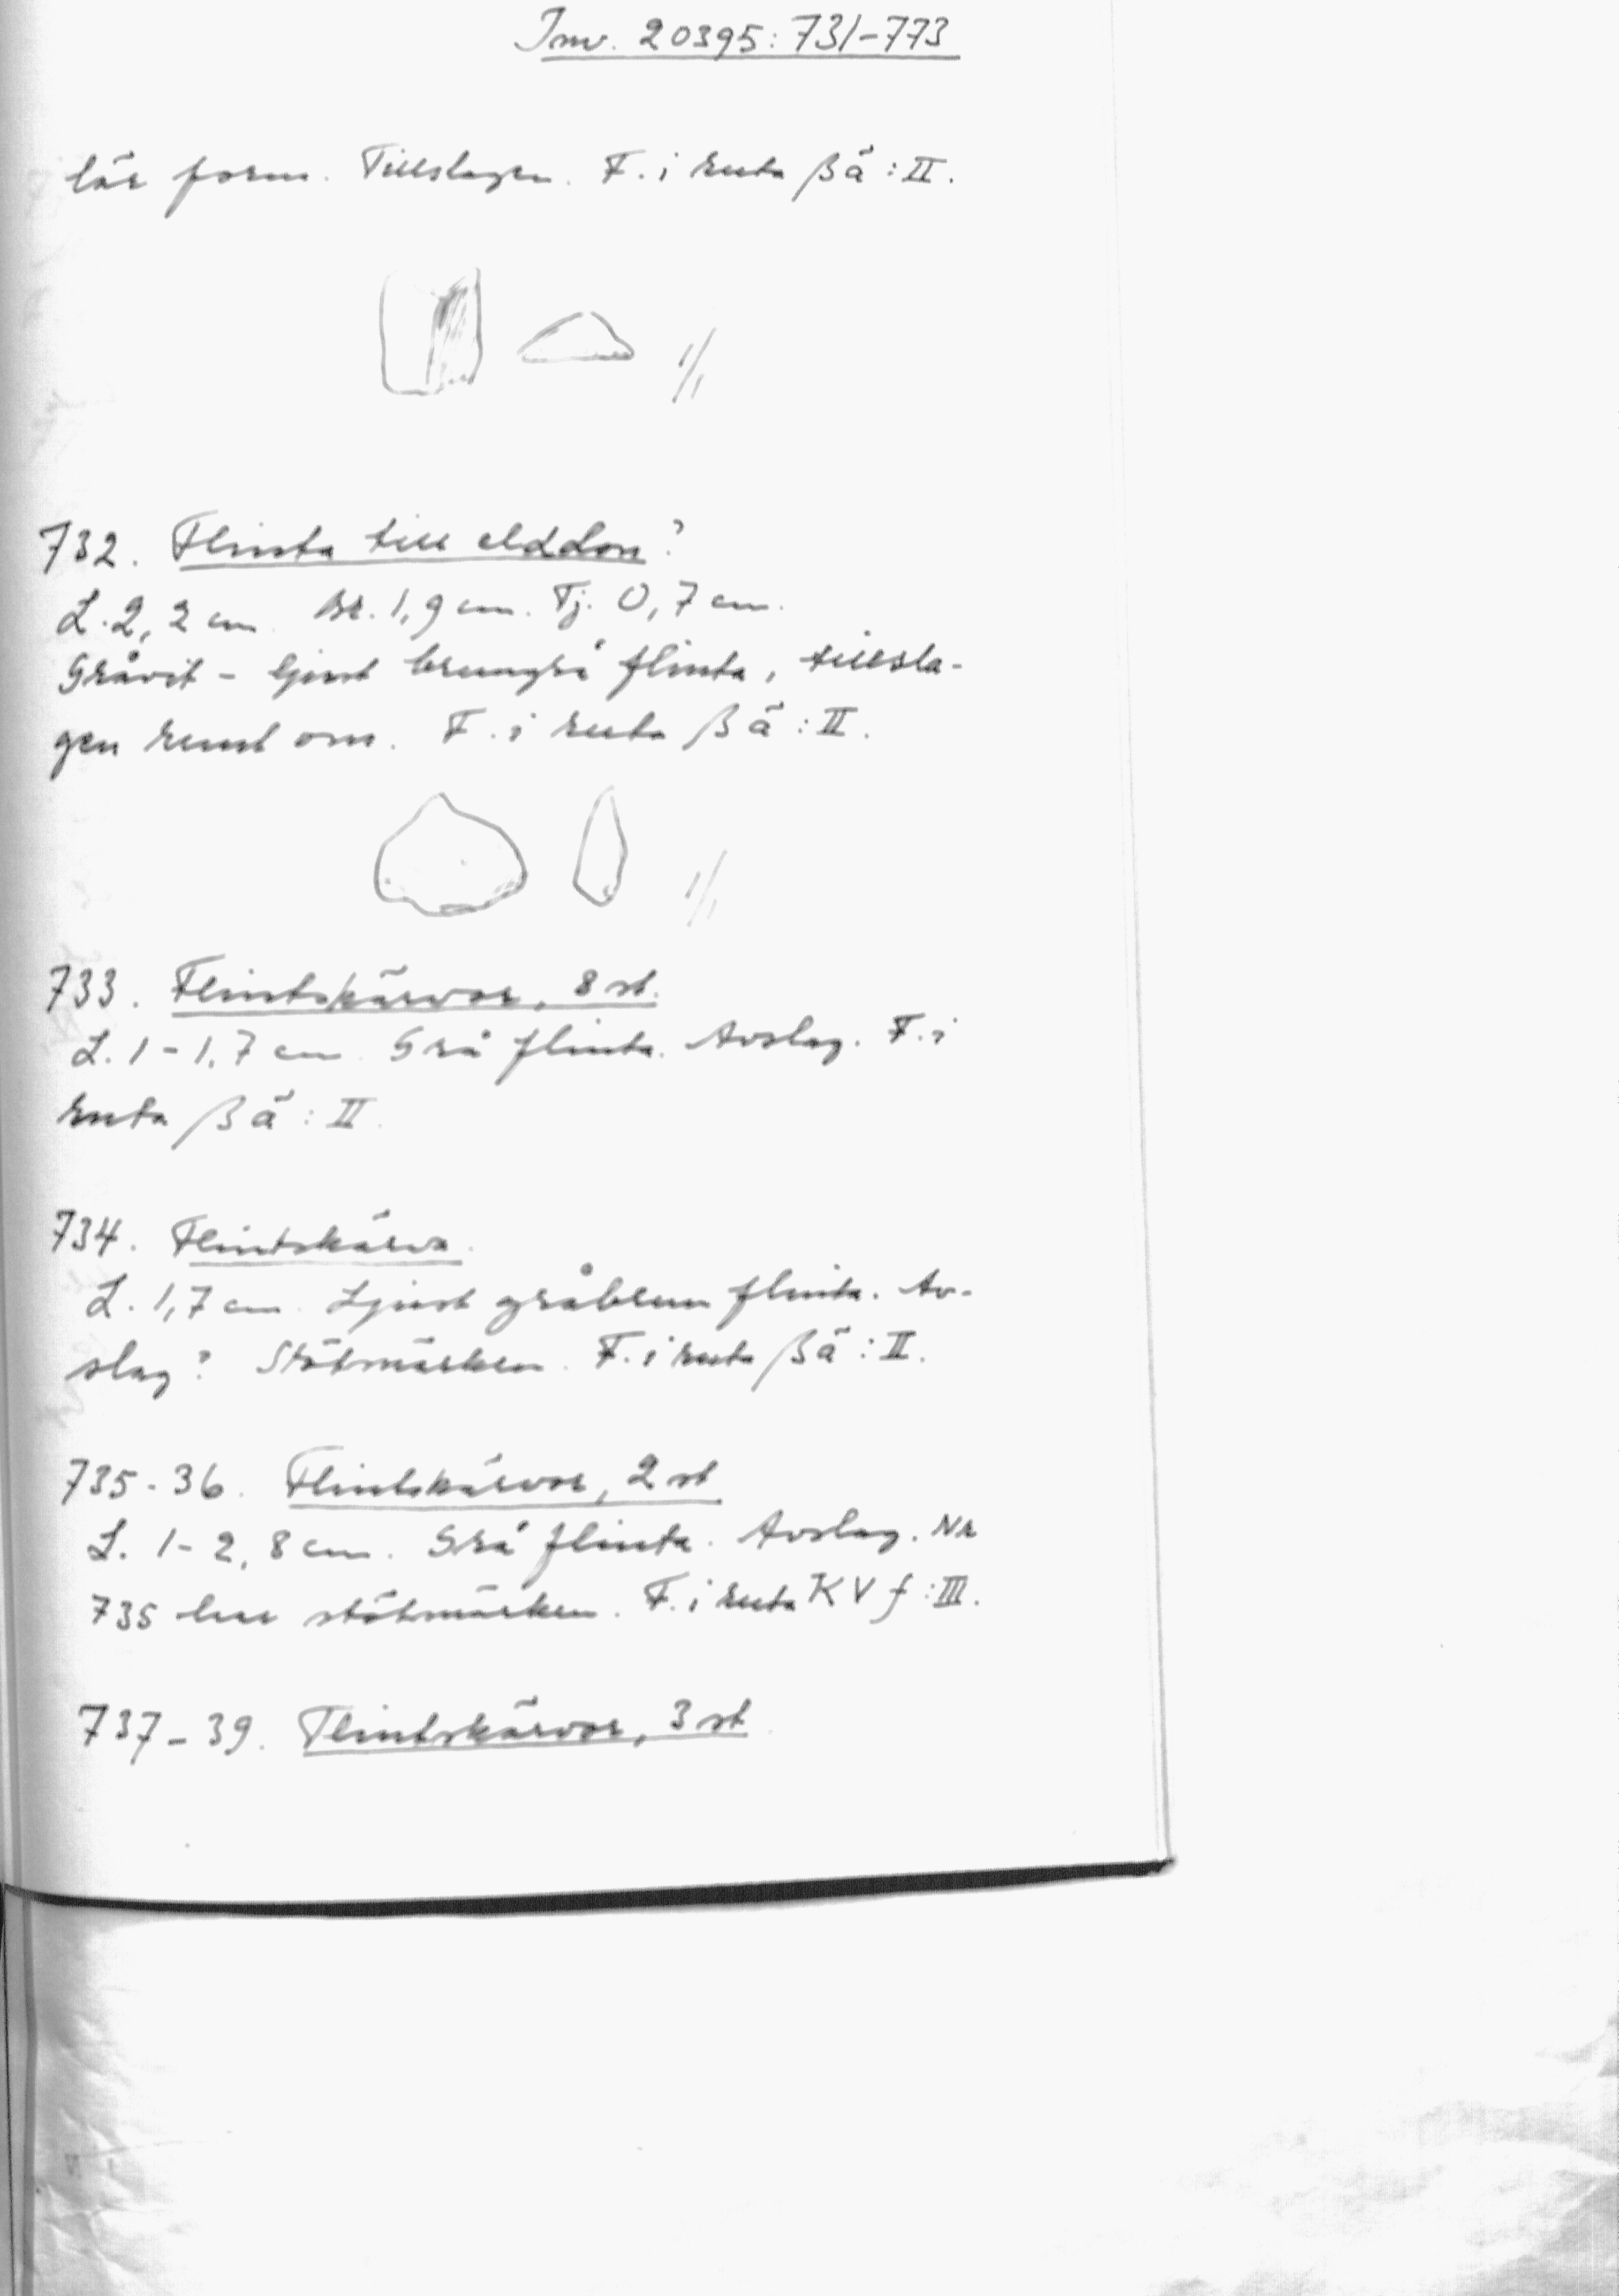 Inv. 20395: 731-773
lär form. Tillslagen. F. i ruta ßä : II.
1/1
732. Flinta till elddon?
L. 2,2 cm. Br. 1,9 cm. Tj. 0,7 cm.
Gråvit - ljust brungrå flinta, tillsla-
gen runt om. F. i ruta ßä : II.
1/1
733. Flintskärvor, 8 st.
L. 1-1,7 cm. Grå flinta. Avslag. F. i
ruta ßä : II.
734. Flintskärva.
L. 1,7 cm. Ljust gråbrun flinta. Av-
slag? Stötmärken. F. i ruta ßä : II.
735-36. Flintskärvor, 2 st
L. 1-2,8 cm. Grå flinta. Avslag. Nr
735 har stötmärken. F. i ruta KVf : III.
737-39. Flintskärvor, 3 st